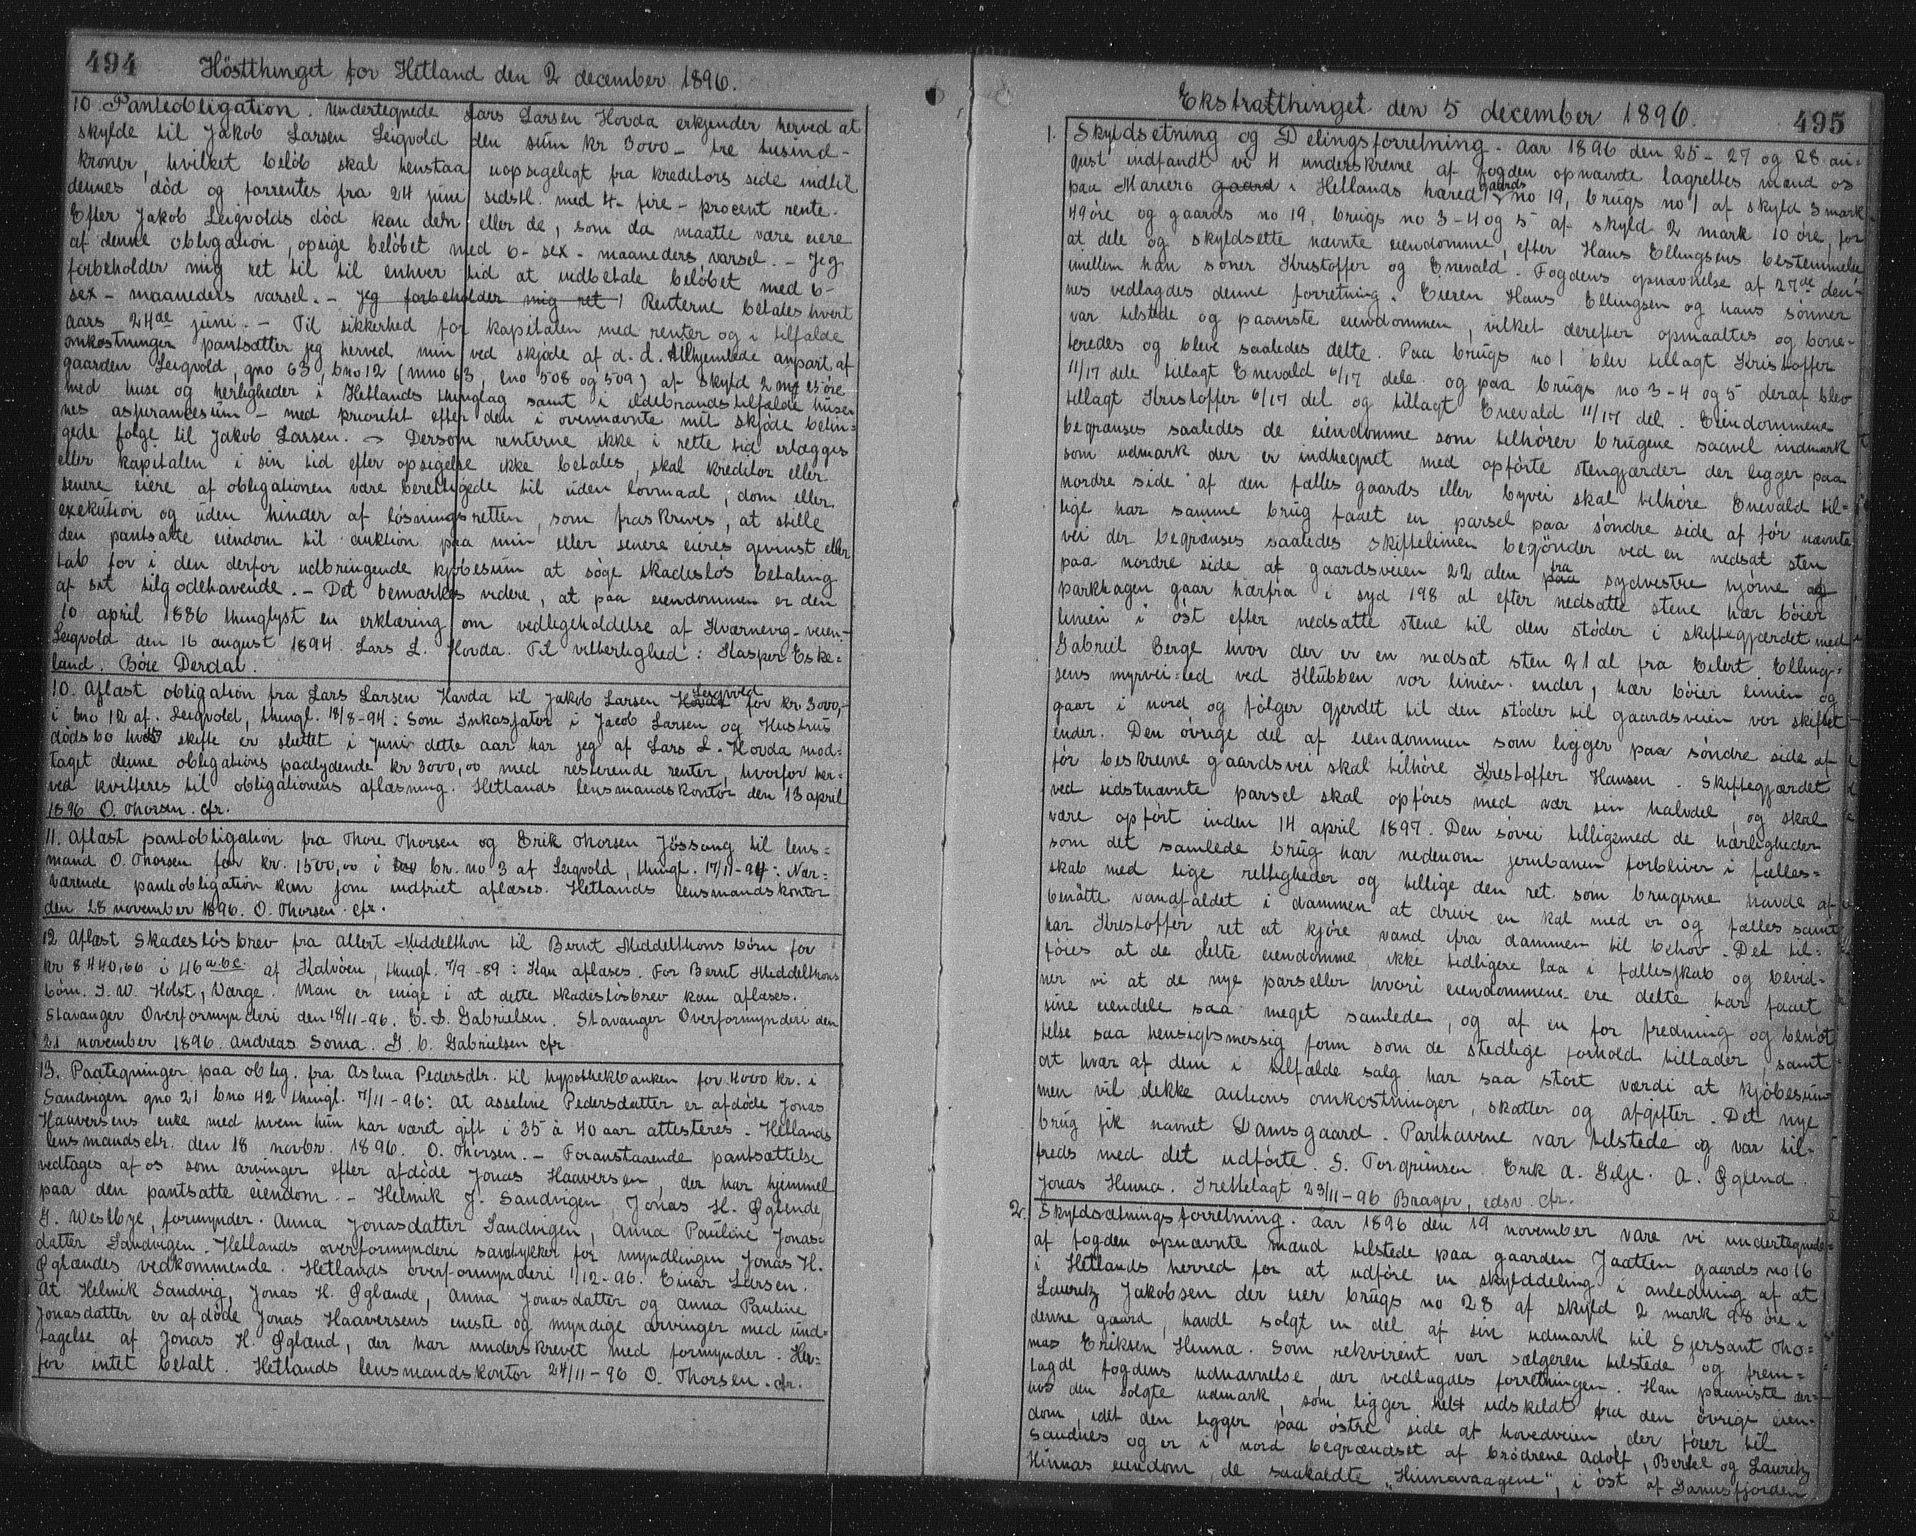 494
Höstthinget for Hetland den 2 december 1896.
10. Panteobligation. Undertegnede Lars Larsen Hovda erkjender herved at
skylde til Jakob Larsen Leigvold den sum kr 3000 - tre tusind -
kroner, hvilket beløb skal henstaa uopsigeligt fra kreditors side indtil
dennes død og forrentes fra 24 juni sidstl. med 4 - fire - procent rente.
Efter Jakob Leigvolds död kan den eller de, som da maatte være eiere
af denne obligation, opsige beløbet med 6 - sex - maaneders varsel. - Jeg
forbeholder mig ret til til enhver tid at udbetale beløbet med 6 -
sex - maaneders varsel. - Jeg forbeholder mig ret ! Renterne betales hvert
aars 24de juni. - Til sikkerhed for kapitalen med renter og i tilfælde
omkostninger pantsætter jeg herved min ved skjøde af d. d. tilhjemlede anpart af
gaarden Leigvold, gno 63, bno 12 (mno 63, lno 508 og 509) af skyld 2 mrk 15 øre
med huse og herligheder i Hetlands thinglag samt i ildebrandstilfælde huse-
nes assurancesum - med prioritet efter den i ovennævnte mit skjøde betin-
gede følge til Jakob Larsen. - Dersom renterne ikke i rette tid erlægges
eller kapitalen i sin tid efter opsigelse ikke betales, skal kreditor eller
senere eiere af obligationen være berettigede til uden lovmaal, dom eller
exekution og uden hinder af løsningsretten, som fraskrives, at stille
den pantsatte eiendom til auktion paa min eller senere eieres gevinst eller
tab for i den derfor udbringende kjøbesum at søge skadesløs betaling
af sit tilgodehavende. - Det bemærkes videre, at paa eiendommen er den
10 april 1886 thinglyst en erklæring om vedligeholdelse af Kværnevig-veien. -
Leigvold den 16 august 1894. Lars L. Hovda. Til vitterlighed: Kasper Eske-
land. Böre Derdal.
10. Aflæst obligation fra Lars Larsen Havda til Jakob Larsen Hovda Leigvold for kr. 3000,-
i bno 12 af Leigvold, thingl. 18/8-94: Som Inkassator i Jacob Larsen og Hustrus
dødsbo hvis skifte er sluttet i juni dette aar har jeg af Lars L. Hovda mod=
taget denne obligations paalydende kr 3000,00 med resterende renter, hvorfor her=
ved kvitteres til obligationens aflæsning. Hetlands lensmandskontor den 13 april
1896 O. Thorsen. cfr.
11. Aflæst pantobligation fra Thore Thorsen og Erik Thorsen Jössang til lens=
mand O. Thorsen for kr. 1500,00 i br. no 3 af Leigvold, thingl. 17/11-94: Nær-
værende panteobligation kan som indfriet aflæses. Hetlands lensmandskontor
den 28 november 1896. O. Thorsen. cfr.
12 Aflæst Skadesløsbrev fra Allert Middelthon til Bernt Middelthons børn for
kr 8440,66 i 46 a.b.c. af Kalvöen, thingl. 7/9-89: Kan aflæses. For Bernt Middelthons
børn. J. W. Holst, Værge. Man er enige i at dette skadesløsbrev kan aflæses.
Stavanger Overformynderi den 18/11-96. E. S. Gabrielsen. Stavanger Overformynderi den
21 november 1896. Andreas Soma. J. C. Gabrielsen cfr
13. Paategninger paa oblig. fra Aslina Pedersdtr. til hypothekbanken for 4000 kr. i
Sandvigen gno 21 bno 42 thingl. 7/11-96: At Asseline Pedersdatter er afdøde Jonas
Haaversens enke med hvem hun har været gift i 35 à 40 aar attesteres. Hetlands
lensmandsctr. den 18. novbr. 1896. O. Thorsen. - Foranstaaende pantsættelse
vedtages af os som arvinger efter afdøde Jonas Haaversen, der har hjemmel
paa den pantsatte eiendom. - Helmik J. Sandvigen, Jonas H. Øglende,
G. Westbye, formynder. Anna Jonasdatter Sandvigen, Anna Pauline Jonas-
datter Sandvigen. Hetlands overformynderi samtykker for myndlingen Jonas H.
Øglændes vedkommende. Hetlands overformynderi 1/12-96. Einar Larsen.
At Helmik Sandvig, Jonas H. Øglænde, Anna Jonasdatter og Anna Pauline
Jonasdatter er afdøde Jonas Haaversens eneste og myndige arvinger med und-
tagelse af Jonas H. Øgland, der har underskrevet med formynder. Her-
for intet betalt. Hetlands lensmandskontor 24/11-96 O. Thorsen. cfr.
Ekstrathinget den 5 december 1896.
495
1. Skyldsetning og Delingsforretning. Aar 1896 den 25 - 27 og 28 au=
gust indfandt vi 4 underskrevne af fogden opnævnte lagrettes mænd os
paa Mariero gaard i Hetlands hæred gaards no 19, brugs no 1 af skyld 3 mark
49 øre og gaards no 19, brugs no 3 - 4 og 5 af skyld 2 mark 10 øre, for
at dele og skyldsette nævnte eiendomme, efter Hans Ellingsens bestemmelse
imellem han søner Kristoffer og Enevald. Fogdens opnævnelse af 27de den-
nes vedlagdes denne forretning. Eieren Hans Ellingsen og hans sønner
var tilstede og paaviste eiendommen, vilket derefter opmaaltes og bone-
teredes og bleve saaledes delte. Paa brugs no 1 blev tillagt Kristoffer
11/17 dele tillagt Enevald 6/17 dele. og paa brugs no 3 - 4 og 5 deraf blev
tillagt Kristoffer 6/17 del og tillagt Enevald 11/17 del. Eiendommene
begrænses saaledes de eiendomme som tilhører brugene saavel indmark
som udmark der er indhegnet med opførte stengjærder der ligger paa
nordre side af den fælles gaards eller byvei skal tilhøre Enevald til=
lige har samme brug faaet en parsel paa søndre side af før nævnte
vei der begrænses saaledes skiftelinien begønder ved en nedsat sten
paa nordre side af gaardsveien 22 alen fra sydvestre hjørne af
parkhagen gaar hærfra i syd 198 al efter nedsatte stene hær böier
linien i öst efter nedsatte stene til den støder i skiftegjærdet med
Gabriel Berge hvor der er en nedsat sten 21 al fra Eilert Elling=
sens myrvei-led ved Klubben vor linien ender, hær böier linien og
gaar i nord og følger gjerdet til den støder til gaardsveien vor skiftet
ender. Den øvrige del af eiendommen som ligger paa søndre side af
før beskrevne gaardsvei skal tilhöre Krestoffer Hansen. Skiftegjærdet
ved sidstnævnte parsel skal opföres med vær sin halvdel, og skal
være opført inden 14 april 1897. Den søvei tilligemed de hærligheder
som det samlede brug har nedenom jernbanen forbliver i fælles=
skab med lige rettigheder og tillige den ret som brugerne havde af
benötte vandfaldet i dammen at drive en kal med er og fælles samt
har Krestoffer ret at kjøre vand ifra dammen til behov. Det til=
føies at de delte eiendomme, ikke tidligere laa i fællesskab og bevid=
ner vi at de nye parseller hvori eiendommene ere delte har faaet
sine eiendele saa meget samlede, og af en for fredning og benöt
telse saa hensigtsmessig form som de stedlige forhold tillader, samt
at hvær af dem i tilfælde salg har saa stort værdi at kjøbesum
men vil dekke auktions omkostninger, skatter og afgifter. Det nye
brug fik navnet Damsgaard. Parthavene var tilstede og var til-
freds med det udførte. S. Torgrimsen. Erik A. Gilje. A. Øglend.
Jonas Hinna. Irettelagt 23/11-96 Brager, edsv. cfr.
2. Skyldsætningsforretning. Aar 1896 den 19 november vare vi undertegnede
af fogden opnævnte mænd tilstede paa gaarden Jaatten gaards no 16
i Hetlands herred for at udføre en skylddeling i anledning af at
Lauritz Jakobsen der eier brugs no 28 af skyld 2 mark 98 øre i
denne gaard, havde solgt en del af sin udmark til Sjersant Tho-
mas Eriksen Hinna. Som rekvirent var sælgeren tilstede og frem=
lagde fogdens udnævnelse der vedlagdes forretningen. Han paaviste der-
hos den solgte udmark, som ligger helt udskildt fra den øvrige eien-
dom, idet den ligger paa østre side af hovedveien der fører til
Sandnes og er i nord begrændset af brødrene Adolf, Bertel og Lauritz
Hinnas eiendom, de saakaldte "Hinnavaagene", i öst af Gannsfjorden